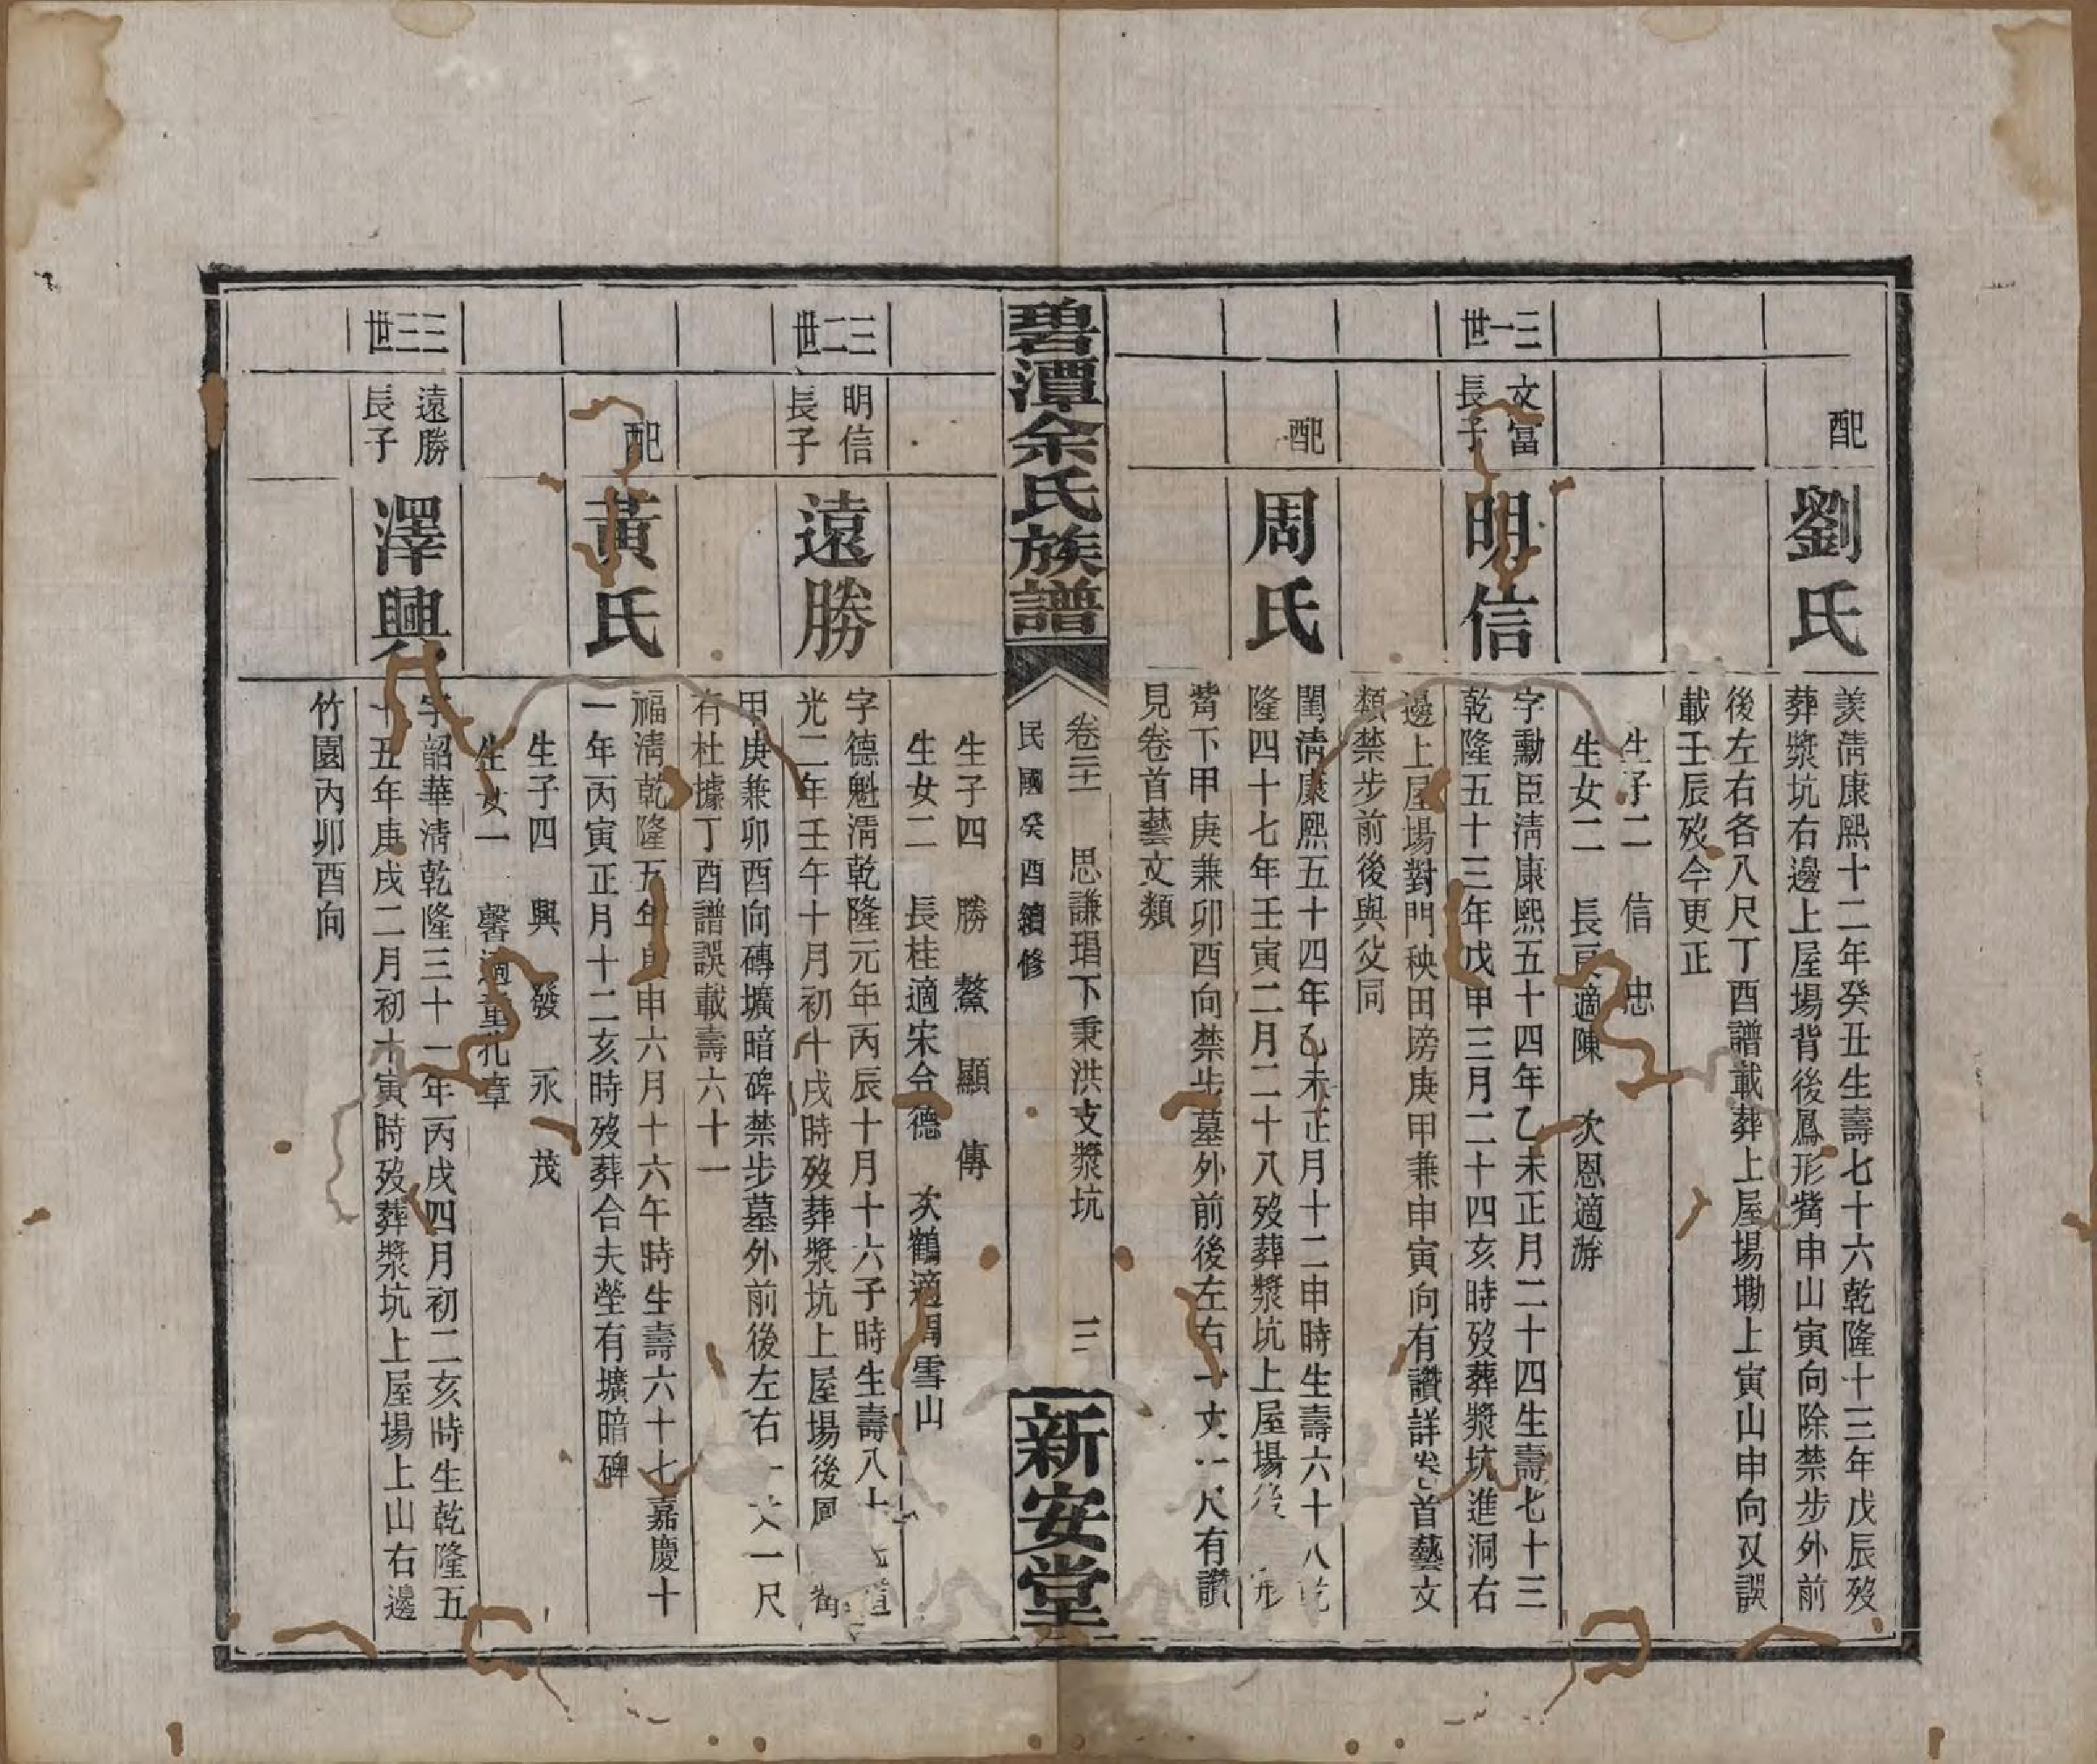 配
劉氏
羨淸康熙十二年癸丑生壽七十六乾隆十三年戊辰歿
葬漿坑右邊上屋場背後鳳形觜申山寅向除禁步外前
後左右各八尺丁酉譜載葬上屋場墈上寅山申向又誤
載壬辰歿今更正
生子二 信 忠
生女二 長 適陳 次恩適游
三一世
文富
長子
明信
字勳臣淸康熙五十四年乙未正月二十四生壽七十三
乾隆五十三年戊申三月二十四亥時歿葬漿坑進洞右
邊上屋場對門秧田塝庚甲兼申寅向有讚詳卷首藝文
類禁步前後與父同
配
周氏
閨淸康熙五十四年乙未正月十二申時生壽六十八乾
隆四十七年壬寅二月二十八歿葬漿坑上屋場後 形
觜下甲庚兼卯酉向禁步墓外前後左右一丈一尺有讚
見卷首藝文類
碧潭余氏族譜
卷三十一 思謙琩下秉洪支漿坑 三
民國癸酉續修
新安堂
生子四 勝 鰲 顯 傳
生女二 長桂適宋令德 次鶴適周雪山
三二世
明信
長子
遠勝
字德魁淸乾隆元年丙辰十月十六子時生壽八十七道
光二年壬午十月初十戌時歿葬漿坑上屋場後鳳 觜
甲庚兼卯酉向磚壙暗碑禁步墓外前後左右一丈一尺
有杜據丁酉譜誤載壽六十一
配
黃氏
福淸乾隆五年庚申六月十六午時生壽六十七嘉慶十
一年丙寅正月十二亥時歿葬合夫塋有壙暗碑
生子四 興 發 永 茂
生女一 馨適董 章
三三世
遠勝
長子
澤興
字韶華淸乾隆三十一年丙戌四月初二亥時生乾隆五
十五年庚戌二月初十寅時歿葬漿坑上屋場上山右邊
竹園內卯酉向